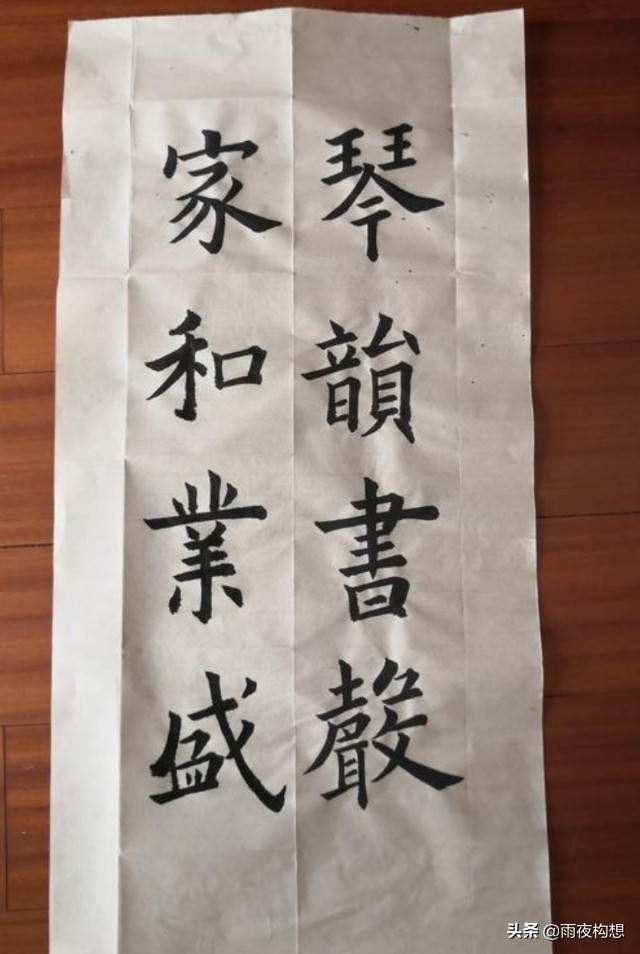 琴韻書聲
家和業盛
头条 @雨夜构想